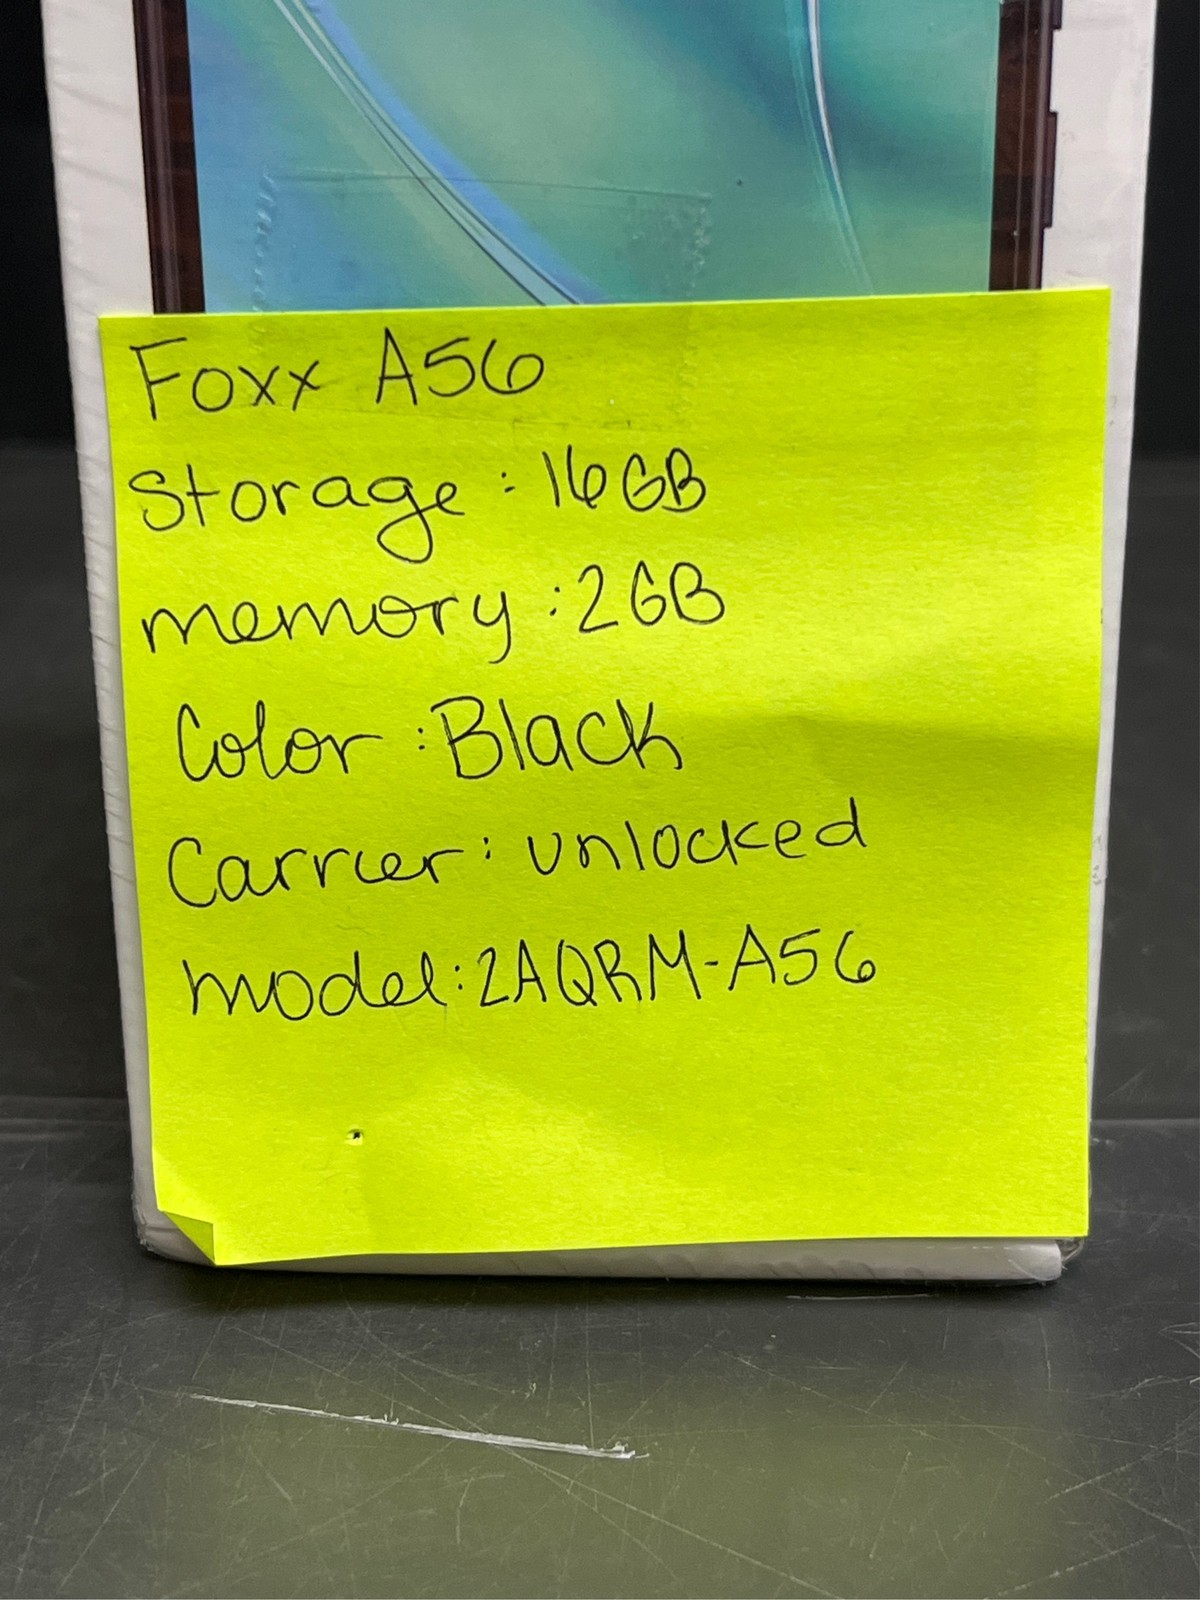 Foxx A56
Storage: 16GB
memory: 2GB
Color: Black
Carrier: unlocked
model: 2AQRM-A56